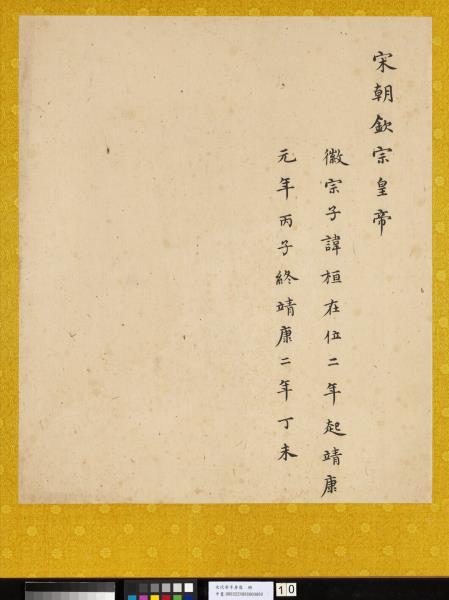 宋朝欽宗皇帝
徽宗子諱桓在位二年起靖康
元年丙子終靖康二年丁未
10